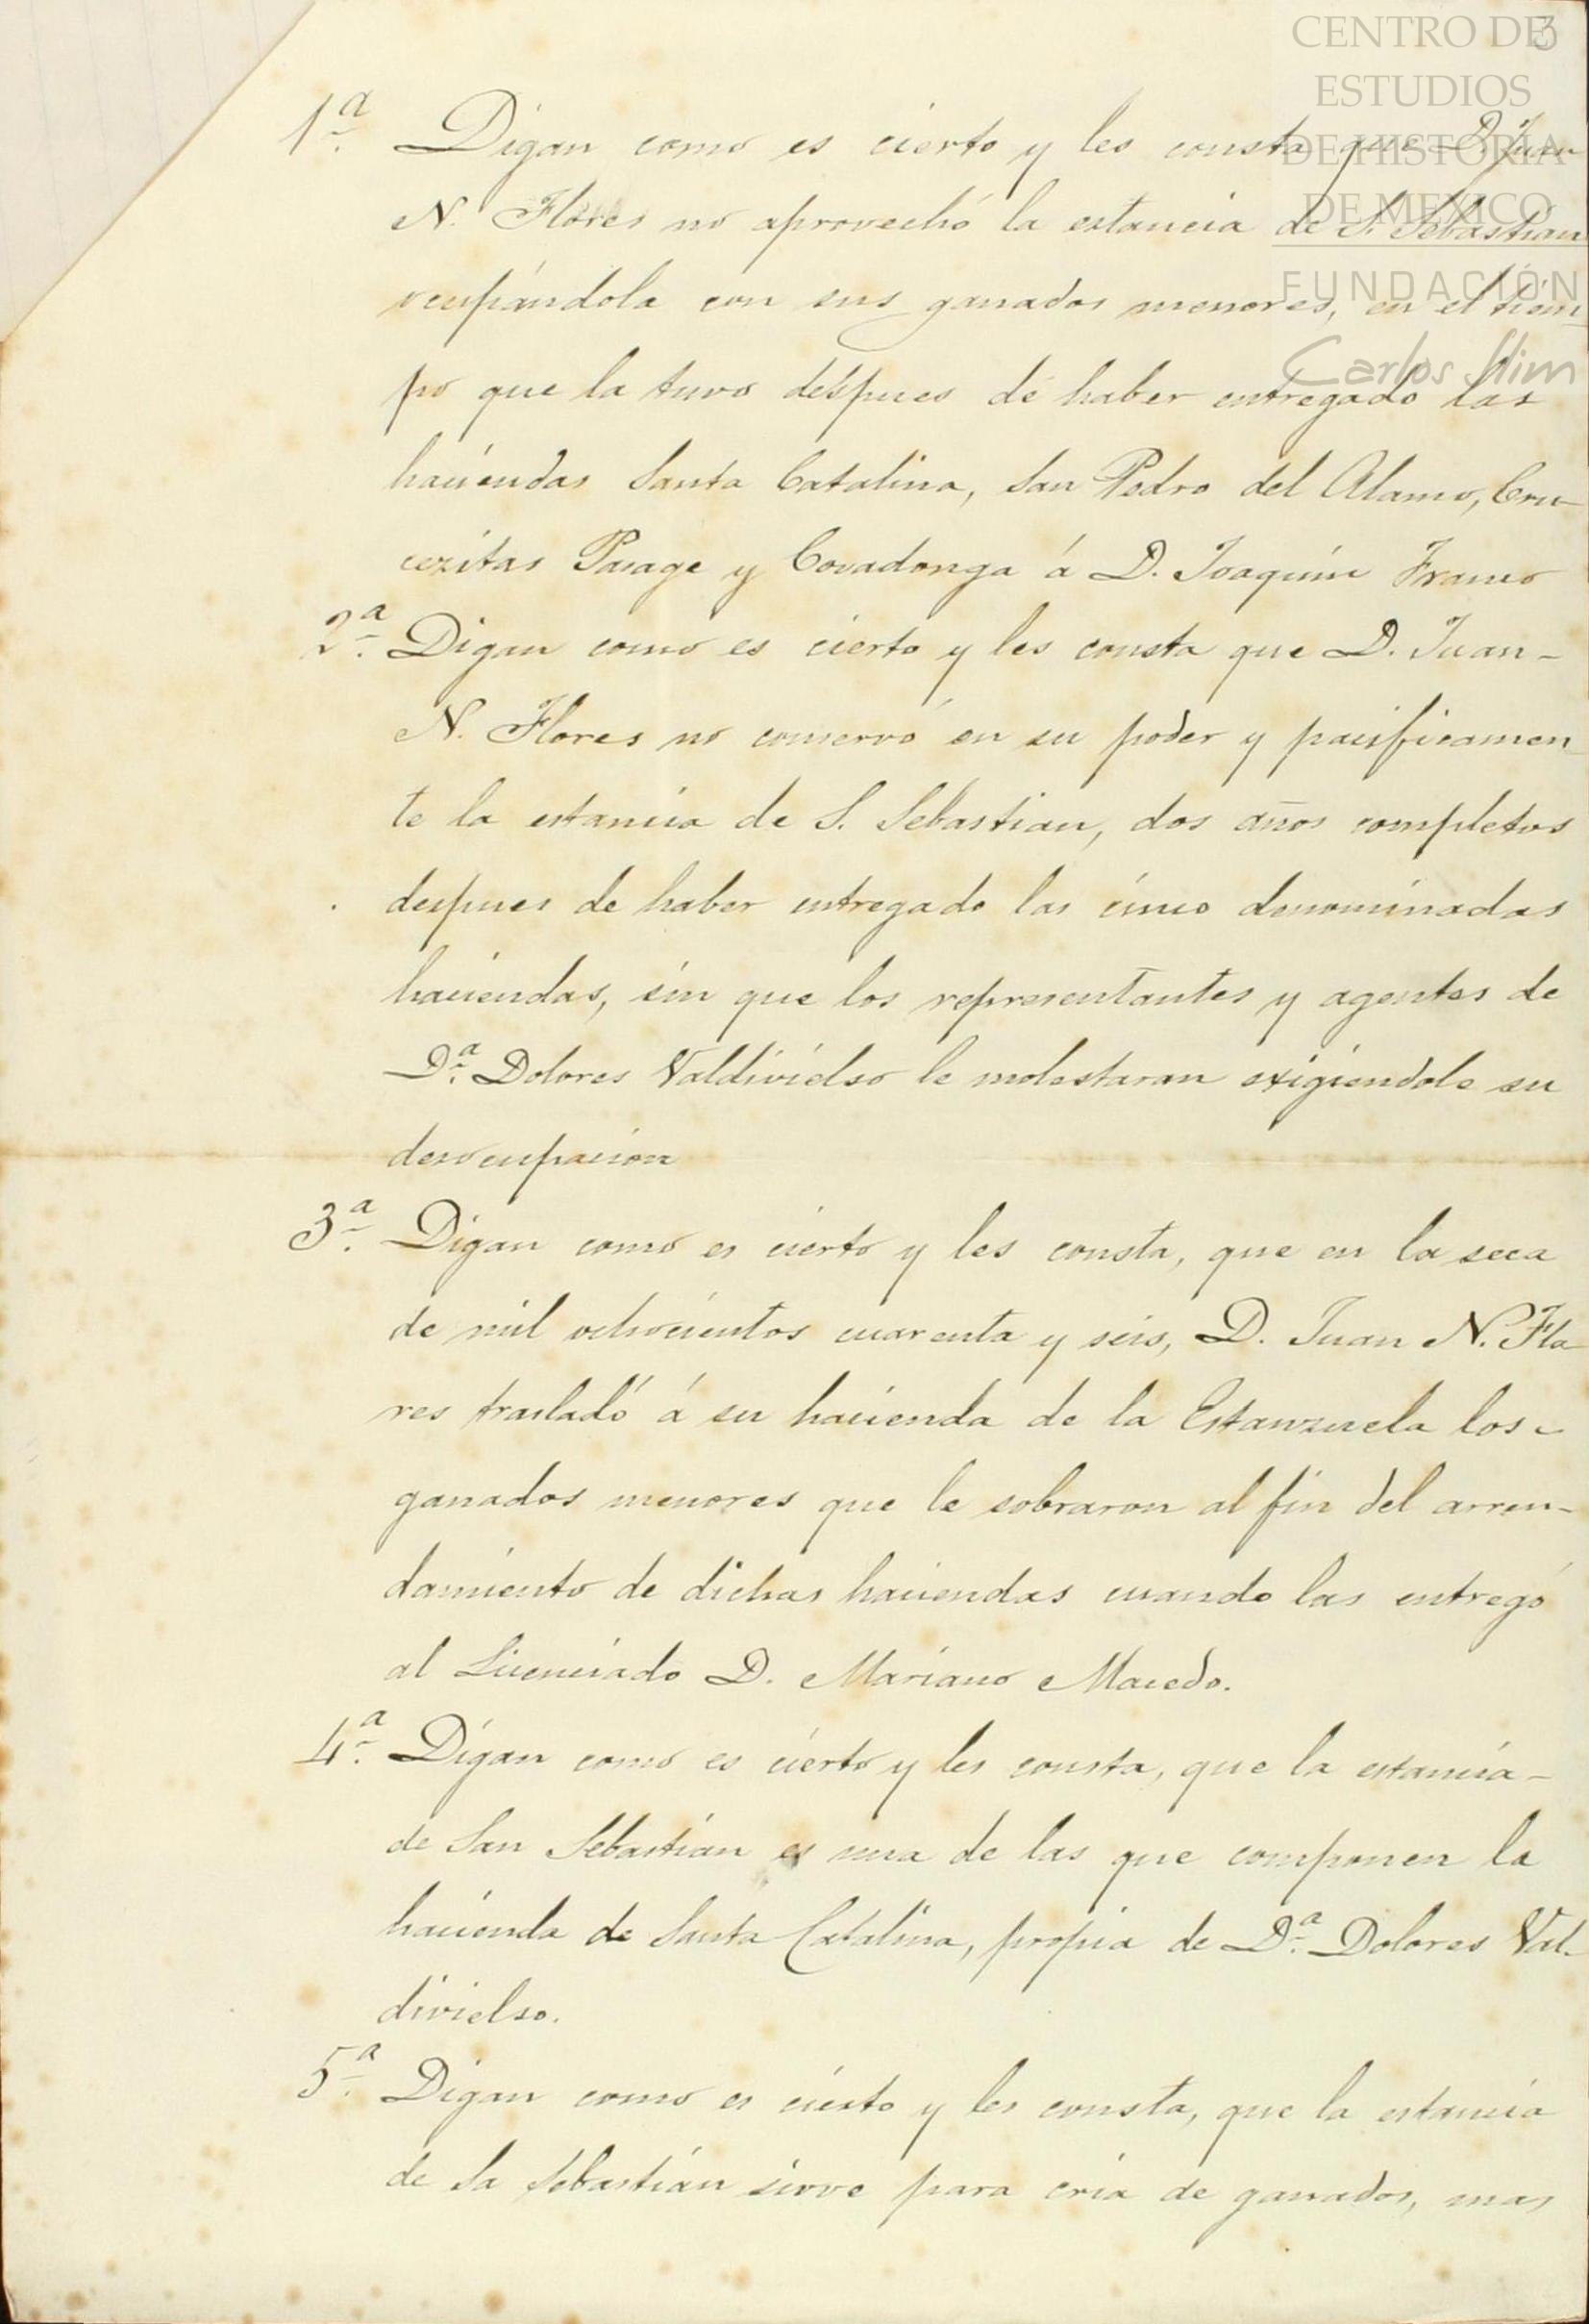 CENTRO DE
ESTUDIOS
DE HISTORIA
DE MEXICO
FUNDACIÓN
Carlos Slim
3
1ª. Digan como es cierto y les consta que D. Juan
N. Flores no aprovechó la estancia de S. Sebastian
ocupándola con sus ganados menores, en el tiem-
po que la tuvo despues de haber entregado las
haciendas Santa Catalina, San Pedro del Alamo, Cru-
cezitas Pasage y Covadonga á D. Joaquim Franco
2ª. Digan como es cierto y les consta que D. Juan-
N. Flores no conservó en su poder y pacificamen
te la estancia de S. Sebastian, dos años completos
despues de haber entregado las cinco denominadas
haciendas, sin que los representantes y agentes de
Dª. Dolores Valdivielso le molestaran exigiendole su
desocupacion
3ª. Digan como es cierto y les consta, que en la seca
de mil ochocientos cuarenta y seis, D. Juan N. Flo
res trasladó á su hacienda de la Estanzuela los-
ganados menores que le sobraron al fin del arren-
damiento de dichas haciendas cuando las entregó
al Licenciado D. Mariano Macedo.
4ª. Digan como es cierto y les consta, que la estancia-
de San Sebastian es una de las que componen la
hacienda de Santa Catalina, propia de Dª. Dolores Val-
divielso.
5ª. Digan como es cierto y les consta, que la estancia
de Sa Sebastián sirve para cria de ganados, mas